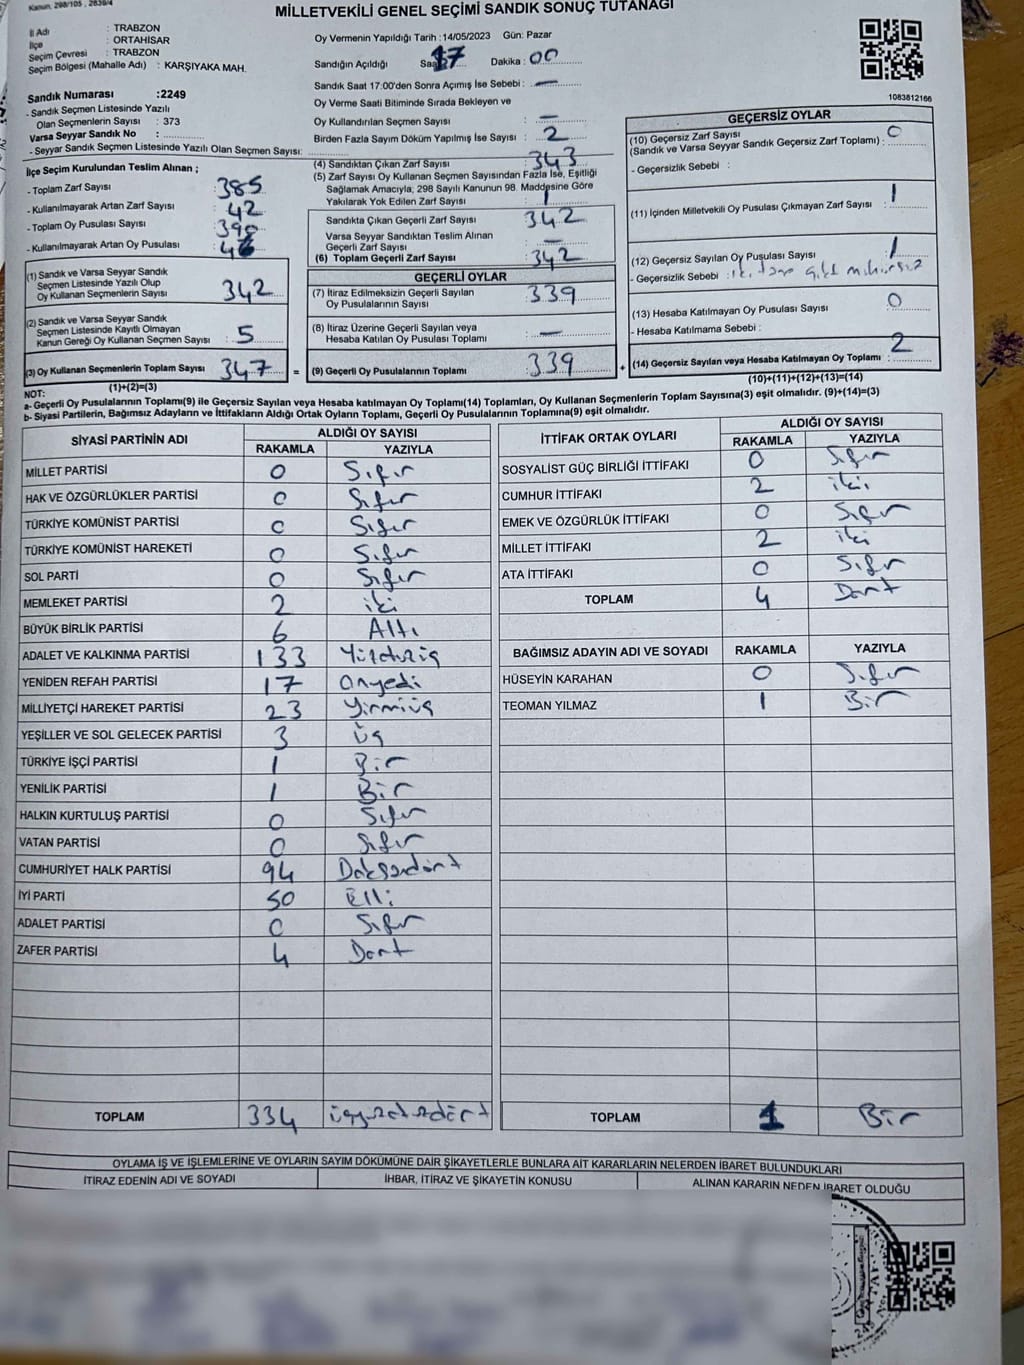 Kanun, 298/105 , 2839/4
MİLLETVEKİLİ GENEL SEÇİMİ SANDIK SONUÇ TUTANAĞI
İl Adı : TRABZON
İlçe : ORTAHİSAR
Seçim Çevresi : TRABZON
Seçim Bölgesi (Mahalle Adı) : KARŞIYAKA MAH.
Sandık Numarası :2249
- Sandık Seçmen Listesinde Yazılı
Olan Seçmenlerin Sayısı : 373
Varsa Seyyar Sandık No :
- Seyyar Sandık Seçmen Listesinde Yazılı Olan Seçmen Sayısı:
Oy Vermenin Yapıldığı Tarih :14/05/2023 Gün: Pazar
Sandığın Açıldığı Saat 17 Dakika : 00
Sandık Saat 17:00'den Sonra Açımış İse Sebebi : —
Oy Verme Saati Bitiminde Sırada Bekleyen ve
Oy Kullandırılan Seçmen Sayısı : —
Birden Fazla Sayım Döküm Yapılmış İse Sayısı : 2
1083812166
İlçe Seçim Kurulundan Teslim Alınan ;
- Toplam Zarf Sayısı : 385
- Kullanılmayarak Artan Zarf Sayısı : 42
- Toplam Oy Pusulası Sayısı : 390
- Kullanılmayarak Artan Oy Pusulası :
(1) Sandık ve Varsa Seyyar Sandık
Seçmen Listesinde Yazılı Olup
Oy Kullanan Seçmenlerin Sayısı : 342
(2) Sandık ve Varsa Seyyar Sandık
Seçmen Listesinde Kayıtlı Olmayan
Kanun Gereği Oy Kullanan Seçmen Sayısı : 5
(3) Oy Kullanan Seçmenlerin Toplam Sayısı : 347
(1)+(2)=(3)
(4) Sandıktan Çıkan Zarf Sayısı : 343
(5) Zarf Sayısı Oy Kullanan Seçmen Sayısından Fazla İse, Eşitliği
Sağlamak Amacıyla; 298 Sayılı Kanunun 98. Maddesine Göre
Yakılarak Yok Edilen Zarf Sayısı : 1
Sandıkta Çıkan Geçerli Zarf Sayısı : 342
Varsa Seyyar Sandıktan Teslim Alınan
Geçerli Zarf Sayısı : —
(6) Toplam Geçerli Zarf Sayısı : 342
GEÇERLİ OYLAR
(7) İtiraz Edilmeksizin Geçerli Sayılan
Oy Pusulalarının Sayısı : 339
(8) İtiraz Üzerine Geçerli Sayılan veya
Hesaba Katılan Oy Pusulası Toplamı : —
= (9) Geçerli Oy Pusulalarının Toplamı : 339 +
GEÇERSİZ OYLAR
(10) Geçersiz Zarf Sayısı
(Sandık ve Varsa Seyyar Sandık Geçersiz Zarf Toplamı) : 0
- Geçersizlik Sebebi :
(11) İçinden Milletvekili Oy Pusulası Çıkmayan Zarf Sayısı : 1
(12) Geçersiz Sayılan Oy Pusulası Sayısı : 1
- Geçersizlik Sebebi : mühürsüz
(13) Hesaba Katılmayan Oy Pusulası Sayısı : 0
- Hesaba Katılmama Sebebi :
(14) Geçersiz Sayılan veya Hesaba Katılmayan Oy Toplamı : 2
(10)+(11)+(12)+(13)=(14)
NOT:
a- Geçerli Oy Pusulalarının Toplamı(9) ile Geçersiz Sayılan veya Hesaba Katılmayan Oy Toplamı(14) Toplamları, Oy Kullanan Seçmenlerin Toplam Sayısına(3) eşit olmalıdır. (9)+(14)=(3)
b- Siyasi Partilerin, Bağımsız Adayların ve İttifakların Aldığı Ortak Oyların Toplamı, Geçerli Oy Pusulalarının Toplamına(9) eşit olmalıdır.
SİYASİ PARTİNİN ADI
ALDIĞI OY SAYISI
RAKAMLA YAZIYLA
MİLLET PARTİSİ 0 Sıfır
HAK VE ÖZGÜRLÜKLER PARTİSİ 0 Sıfır
TÜRKİYE KOMÜNİST PARTİSİ 0 Sıfır
TÜRKİYE KOMÜNİST HAREKETİ 0 Sıfır
SOL PARTİ 0 Sıfır
MEMLEKET PARTİSİ 2 iki
BÜYÜK BİRLİK PARTİSİ 6 Altı
ADALET VE KALKINMA PARTİSİ 133
YENİDEN REFAH PARTİSİ 17 onyedi
MİLLİYETÇİ HAREKET PARTİSİ 23 Yirmiüç
YEŞİLLER VE SOL GELECEK PARTİSİ 3 üç
TÜRKİYE İŞÇİ PARTİSİ 1 Bir
YENİLİK PARTİSİ 1 Bir
HALKIN KURTULUŞ PARTİSİ 0 Sıfır
VATAN PARTİSİ 0 Sıfır
CUMHURİYET HALK PARTİSİ 94 Doksandört
İYİ PARTİ 50 Elli
ADALET PARTİSİ 0 Sıfır
ZAFER PARTİSİ 4 Dört
TOPLAM 334
İTTİFAK ORTAK OYLARI
ALDIĞI OY SAYISI
RAKAMLA YAZIYLA
SOSYALİST GÜÇ BİRLİĞİ İTTİFAKI 0 Sıfır
CUMHUR İTTİFAKI 2 iki
EMEK VE ÖZGÜRLÜK İTTİFAKI 0 Sıfır
MİLLET İTTİFAKI 2 iki
ATA İTTİFAKI 0 Sıfır
TOPLAM 4 Dört
BAĞIMSIZ ADAYIN ADI VE SOYADI RAKAMLA YAZIYLA
HÜSEYİN KARAHAN 0 Sıfır
TEOMAN YILMAZ 1 Bir
TOPLAM 1 Bir
OYLAMA İŞ VE İŞLEMLERİNE VE OYLARIN SAYIM DÖKÜMÜNE DAİR ŞİKAYETLERLE BUNLARA AİT KARARLARIN NELERDEN İBARET BULUNDUKLARI
İTİRAZ EDENİN ADI VE SOYADI İHBAR, İTİRAZ VE ŞİKAYETİN KONUSU ALINAN KARARIN NEDEN İBARET OLDUĞU